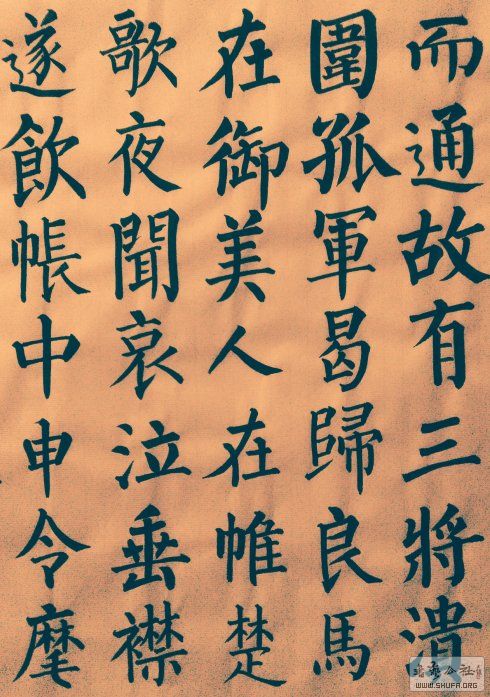 而通故有三將潰
圍孤軍曷歸良馬
在御美人在帷楚
歌夜聞哀泣垂襟
遂飲帳中申令麾
WWW.SHUFA.ORG